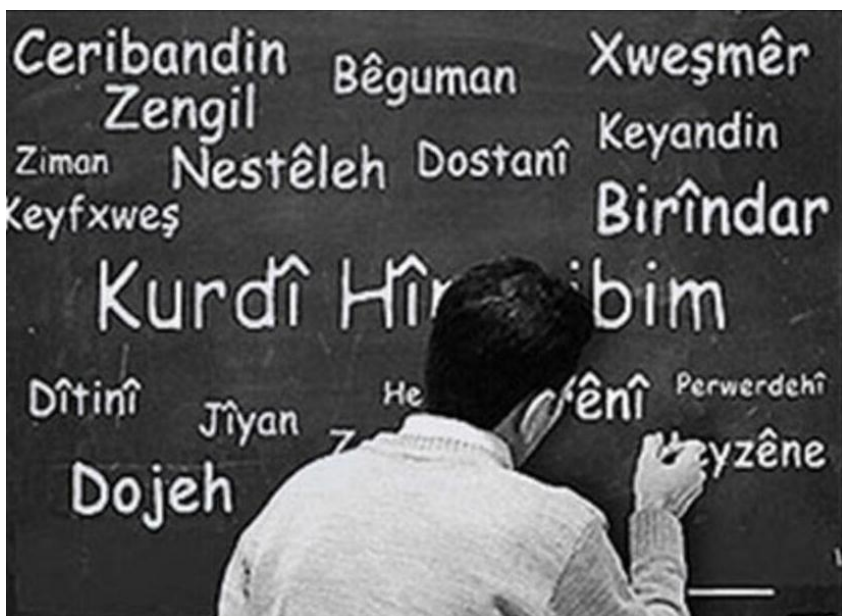 Ceribandin
Bêguman
Xweşmêr
Zengil
Keyandin
Ziman
Nestêleh
Dostanî
Keyfxweş
Birîndar
Kurdî
Dîtinî
Jîyan
Perwerdehî
Dojeh